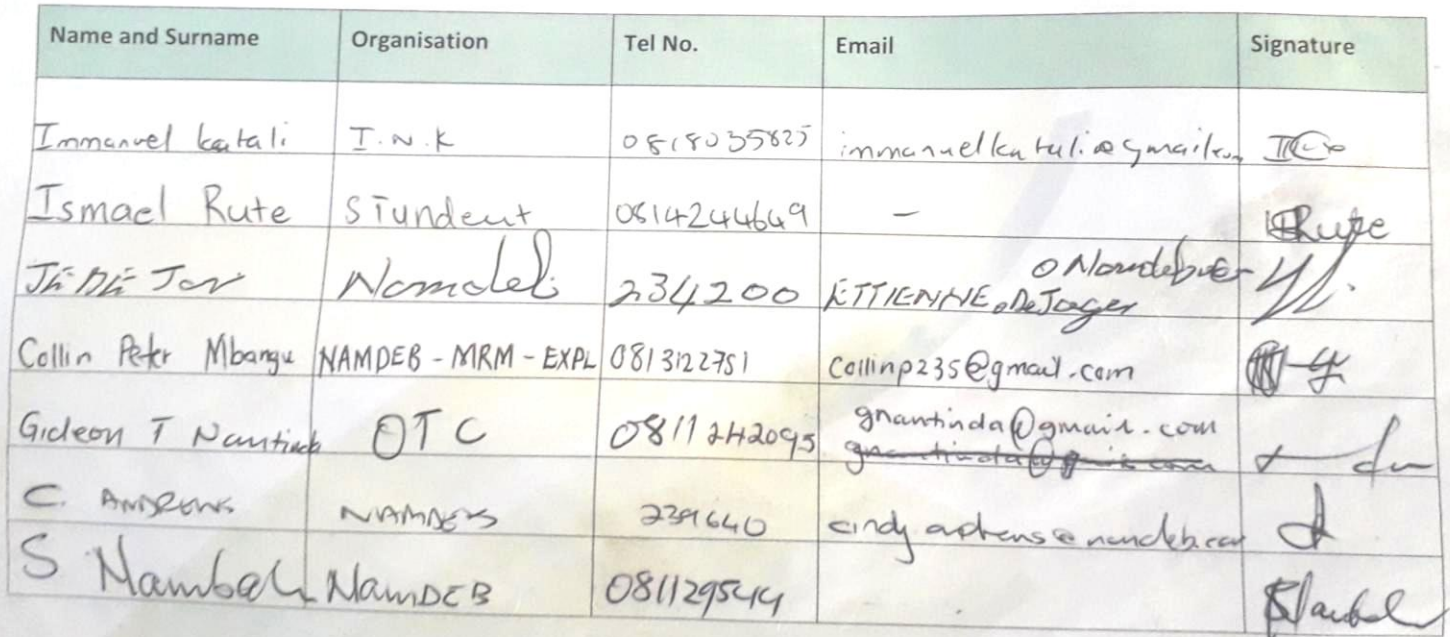 Name and Surname Organisation Tel No. Email Signature
Immanuel katali I.N.K 0818035825 immanuelkatali@gmail.com
Ismael Rute STundent 0814244649 - Rute
Namdeb 234200 ETTIENNE.DeJager
Collin Peter Mbangu NAMDEB - MRM - EXPL 0813122751 Collinp235@gmail.com
Gideon T Nantinda OTC 0811242095 gnantinda@gmail.com
C. ANDREWS NAMDEB 239640
S NamDEB 0811295414